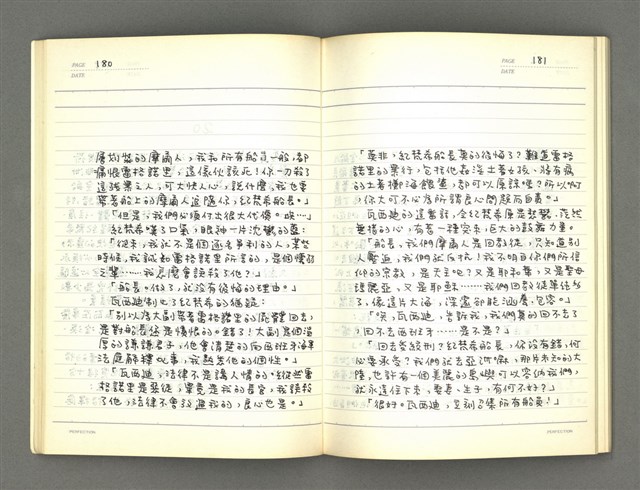 PAGE 180
DATE
層剝裝的摩爾人，我和所有船員一般，都
痛恨雷格諾里，這傢伙該死！你一刀殺了
這狼業主人，可大快人心，說什麼，我也要
帶著船上的摩爾人追隨你，紀梵希船長。」
「但是，我們必須付出很大代價。唉…」
紀梵希嘆了口氣，眼神一片沈鬱的藍：
「從來，我就不是個逃名爭利的人，某些
時候，我誠如雷格諾里所言的，是個懦弱
之輩……我怎麼會誤殺了他？」
「船長，做了，就沒有後悔的理由。」
瓦西迪制止了紀梵希的猶疑：
「別以為大副帶著雷格諾里的屍體回去，
是對船長您是憤恨的。錯了！大副為個溫
厚的謙謙君子，他會清楚的向西班牙海軍
法庭解釋此事，我熟悉他的個性。」
「瓦西迪，法律不是講人情的。縱然雷
格諾里是惡徒，畢竟是我的長官，我誤殺
了他，法律不會放過我的，良心也是。」
PERFECTION
PAGE 181
DATE
「莫非，紀梵希船長真的後悔了？難道雷格
諾里的罪行，包括他姦淫土著女孩，將有病
的土著擲海餵鯊，都可以原諒喔？所以啊
，你大可不必為所謂良心問題而自責。」
瓦西迪的這番話，令紀梵希原是愁鬱、茫然
無措的心，有著一種突來，巨大的鼓舞力量。
「船長，我們摩爾人是回教徒，只知道別
人壓迫，我們就反抗！我不明白你們所信
仰的宗教，是天主吧？又是耶和華，又是聖母
瑪麗亞，又是耶穌……我們回教徒單純多
了，像這片大海，深邃卻能涵養、包容。」
「哭，瓦西迪，告訴我，我們真的回不去了
，回不去西班牙……是不是？」
「回去受絞刑？紀梵希船長，你沒有錯，何
必要承受？我們就去亞洲嘛，那片未知的大
陸，也許有一個美麗的島嶼可以容納我們，
就永遠住下來，娶妻、生子，有何不好？」
「很好。瓦西迪，立刻召集所有船員！」
PERFECTION